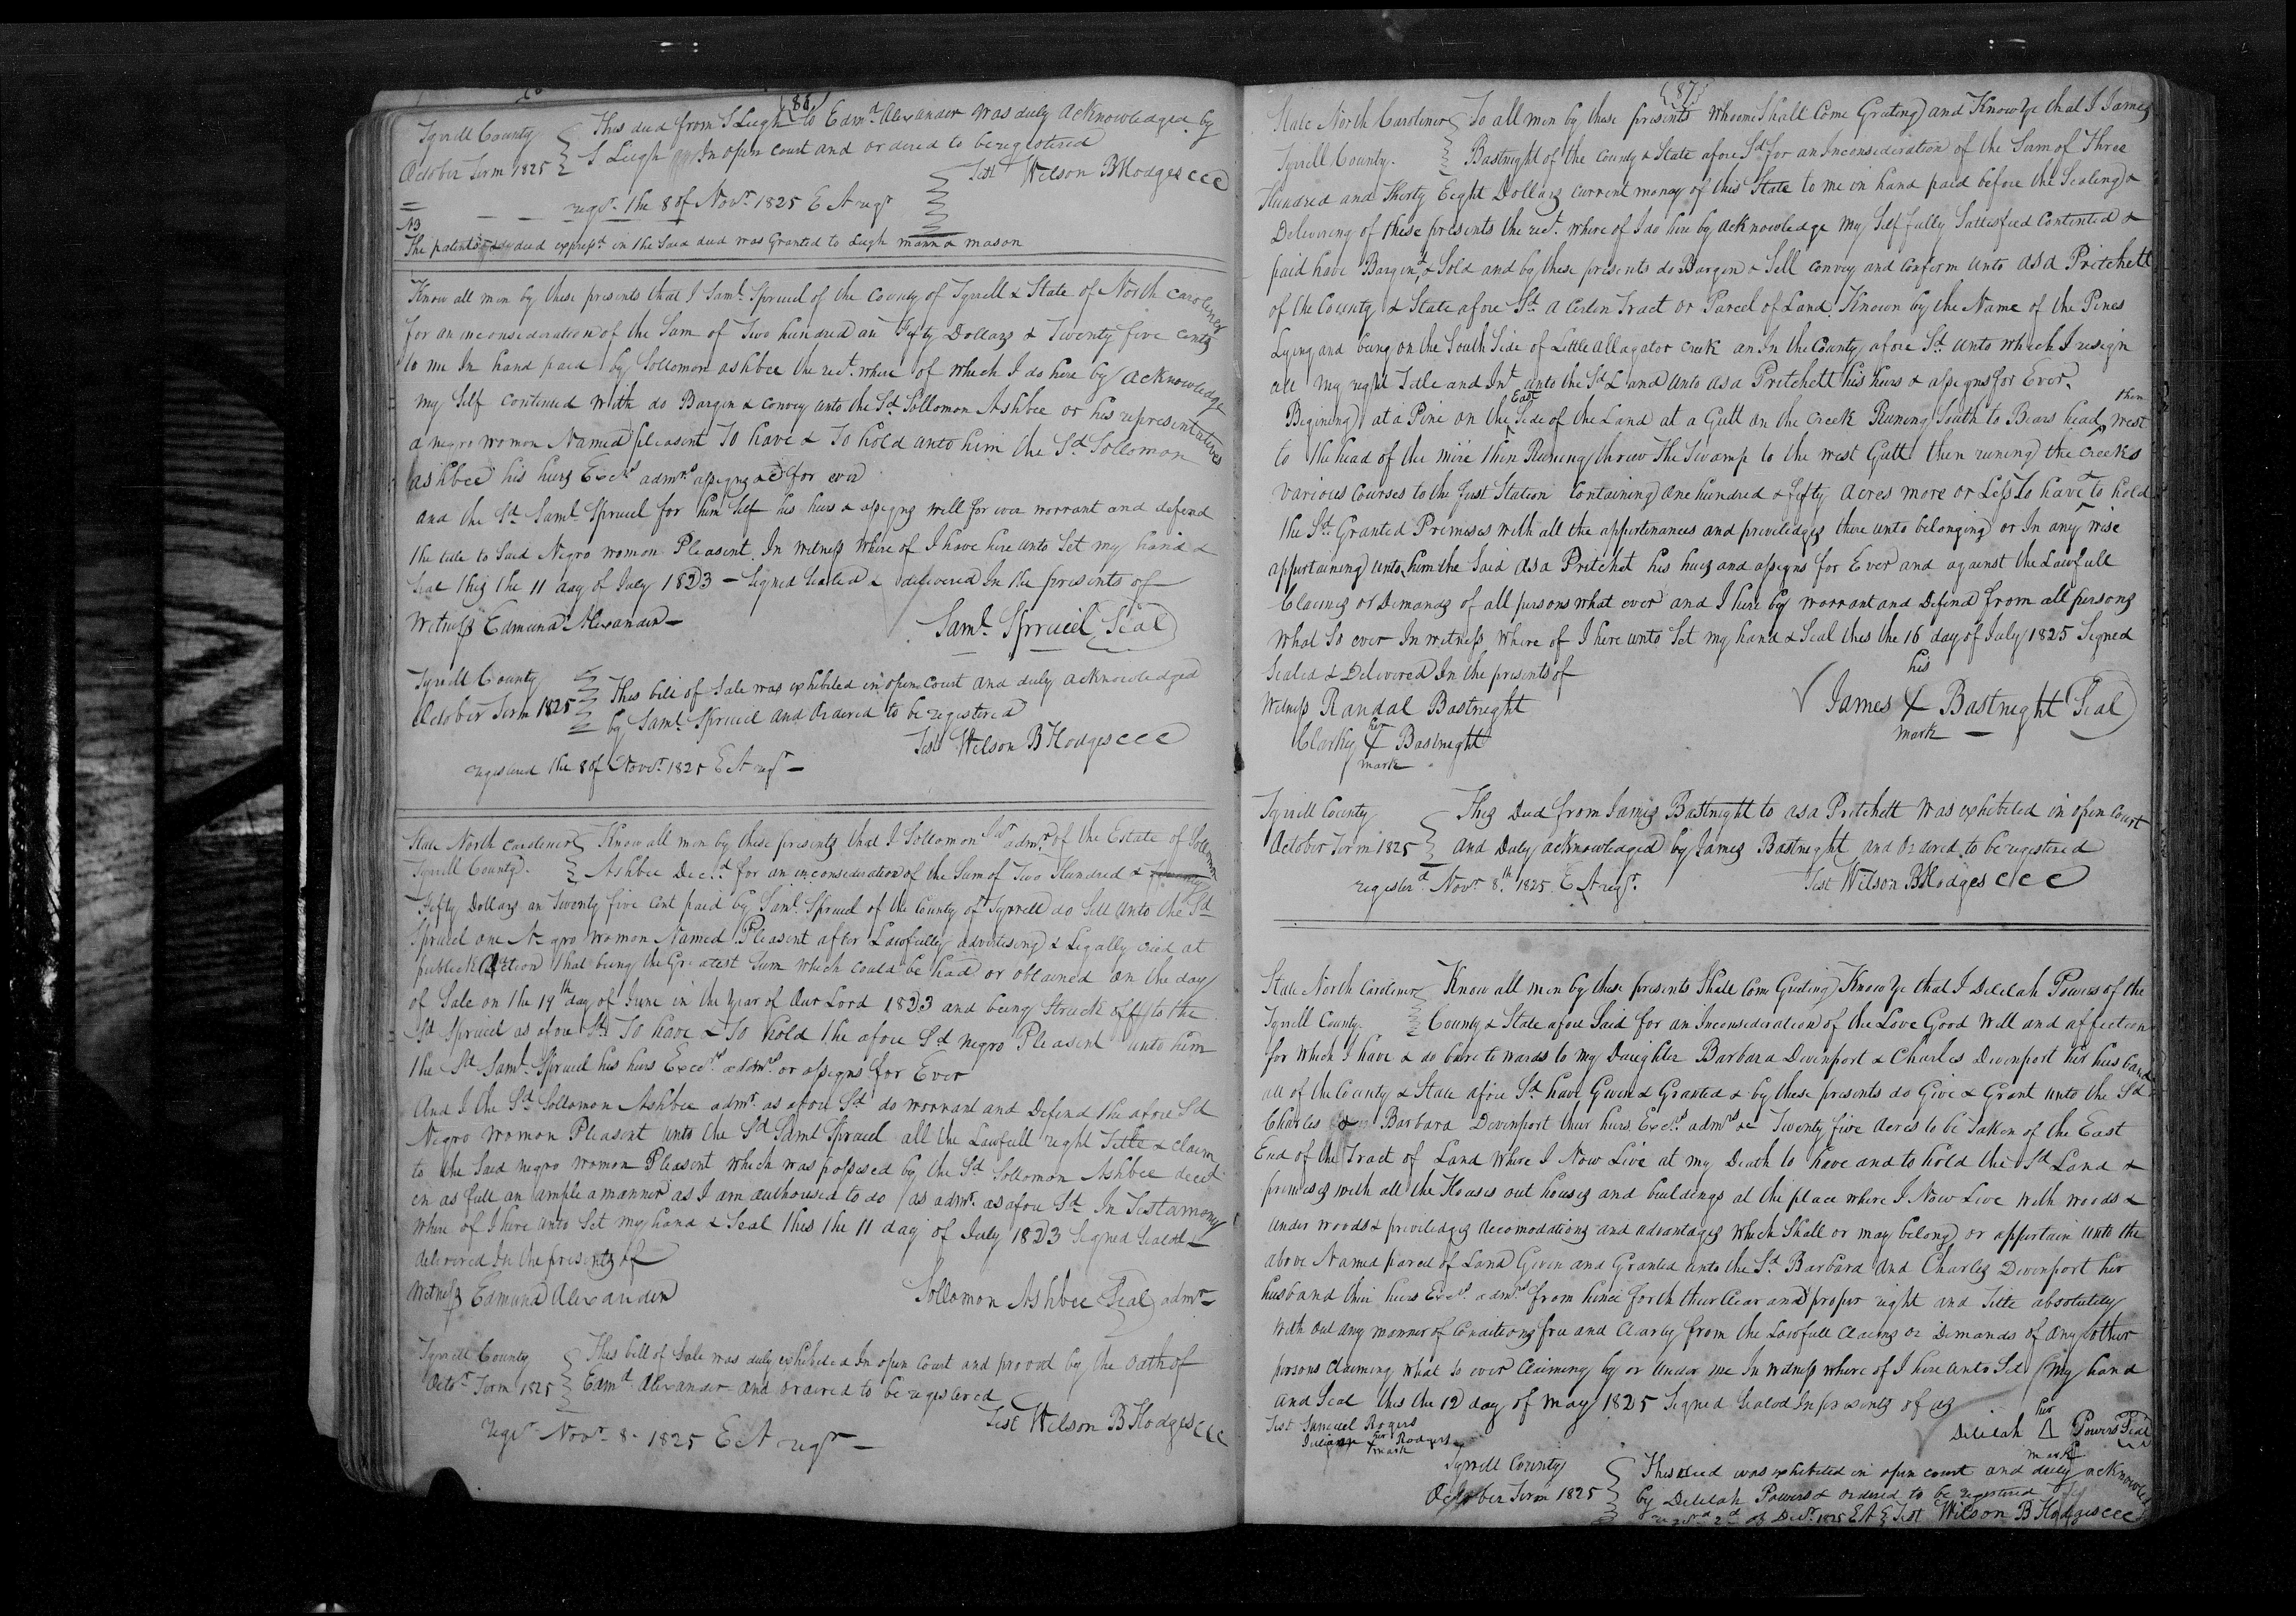 (86)
Tyrrell County This deed from S Leigh to Edmd Alexander was duly acknowledged by
October Term 1825 S Leigh In open court and ordered to be registered
Test Wilson B Hodges CCC
regr. the 8 of Novr 1825 E A regr
NB
The patents deed expressd in the Said deed was Granted to Leigh mann & mason
Know all men by these presents that I Saml. Spruiel of the County of Tyrrell & State of North Caroliner
for an inconsideration of the Sum of Two hundred an Fifty Dollars & Twenty five cents
to me In hand paid by Sollomon ashbee the rect. where of which I do here by acknowledge
my Self contented with do Bargin & convey unto the Sd. Sollomon Ashbee or his representatives
a negro womon Named pleasent To have & To hold unto him the Sd Sollomon
ashbee his heirs Excrs admrs assigns &C for ever
and the Sd Saml. Spruiel for him Self his heirs & assigns will for ever worrant and defend
the title to Said Negro womon Pleasent. In witness where of I have here unto Set my hand &
Seal this the 11 day of July 1823 – Signed Sealed & delivered In the presents of
Witness Edmund Alexander – Saml. Spruiel Seal
Tyrrell County This bill of Sale was exhibited in open Court and duly acknowledged
October Term 1825 by Saml Spruiel and Ordered to be registered
Test Wilson B Hodges CCC
registered the 8 of Novr 1825 E A regr –
State North Caroliner Know all men by these presents that I Sollomon Jur admr. of the Estate of Sollomon
Tyrrell County. Ashbee Decd. for an inconsideration of the Sum of Two Hundred &
Fifty Dollars an Twenty five Cent paid by Saml. Spruiel of the County of Tyrrell do Sell unto the Sd
Spruiel one Negro womon Named Pleasent after Lawfully advertising & Legally cried at
publick Action that being the Greatest Sum which could be had or obtained on the day
of Sale on the 19th day of June in the year of Our Lord 1823 and being Struck off to the
Sd Spruiel as afore Sd To have & To hold the afore Sd negro Pleasent unto him
the Sd Saml. Spruiel his heirs Excrs admrs or assigns for Ever
And I the Sd Sollomon Ashbee admr. as afore Sd do worrant and Defend the afore Sd
Negro womon Pleasent unto the Sd Saml Spruiel all the Lawfull right Title & claim
to the Said negro womon Pleasent which was possesed by the Sd Sollomon Ashbee decd
in as full an ample a manner as I am authorised to do as admr. as afore Sd In Testamony
where of I here unto Set my hand & Seal this the 11 day of July 1823 Signed Sealed &
delivered In the presents of
Witness Edmund Alexander Sollomon Ashbee Seal admr
Tyrrell County This bill of Sale was duly exhibited In open Court and provd by the Oath of
Octor Term 1825 Edmd. Alexander and ordered to be registered
Test Wilson B Hodges CCC
regr. Novr 8. 1825 E A regr –
(87)
State North Caroliner To all men by these presents whome Shall Come Greeting and Know ye that I James
Tyrrell County. Bastnight of the County & State afore Sd for an Inconsideration of the Sum of Three
Hundred and Thirty Eight Dollars current money of this State to me in hand paid before the Sealing &
Delivering of these presents the rect. where of I do here by acknowledge my Self fully Sattesfied Contented &
paid have Bargind & Sold and by these presents do Bargen & Sell convey and Confirm unto asa Pritchett
of the County & State afore Sd. a certin Tract or Parcel of Land Known by the Name of the Pines
Lying and being on the South Side of Little allagator Creek an In the County afore Sd. unto which I resign
all my right Title and Int unto the Sd Land unto asa Pritchett his heirs & assigns for Ever.
Begining at a Pine on the East Side of the Land at a Gutt on the Creek Runing South to Bears head then west
to the head of the mire then Runing threw The Swamp to the west Gutt then runing the Creeks
various Courses to the first Station Containing One hundred & fifty acres more or Less To have & To hold
the Sd. Granted Premises with all the appertinances and priviledges there unto belonging or In any wise
appurtaining unto him the Said asa Pritchet his heirs and assigns for Ever and against the Lawfull
Claimes or Demands of all persons what ever and I here by worrant and Defend from all persons
what So ever In witness where of I here unto Set my hand & Seal this the 16 day of July 1825 Signed
Sealed & Delivered In the presents of
Witness Randal Bastnight his
James X Bastnight Seal
mark
Clarky her X Bastnight
mark
Tyrrell County This Deed from James Bastnight to asa Pritchett was exhibited in open Court
October Term 1825 and Duly acknowledged by James Bastnight and Ordered to be registered
registerd. Novr 8th. 1825. E A regr. Test Wilson B Hodges CCC
State North Caroliner Know all men by these presents Shall Come Greeting Know ye that I Delilah Powers of the
Tyrrell County. County & State afore Said for an Inconsideration of the Love Good Will and affection
for which I have & do bare to wards to my Daughter Barbara Devenport & Charles Devenport her husband
all of the County & State afore Sd. have Given & Granted & by these presents do Give & Grant unto the Sd
Charles & Barbara Devenport their heirs Excrs admrs &c Twenty five Acres to be Taken of the East
End of the Tract of Land where I Now Live at my Death to have and to hold the Sd Land &
premises with all the Houses out houses and buildings at the place where I Now Live with woods &
under woods & priviledges Accomodations and advantages which Shall or may belong or appertain unto the
above Named parcel of Land Given and Granted unto the Sd. Barbara and Charles Devenport her
husband their heirs Excrs. admrs from hence forth their Clear and proper right and Title absolutely
with out any manner of Conditions free and Clearly from the Lawfull Claims or Demands of any other
persons claiming what so ever Claiming by or under me In witness where of I here unto Set my hand
and Seal this the 12 day of May 1825 Signed Sealed In presents of us
Test Samuel Rogers her
Delilah Powers Seal
mark
her Rodgers
mark
Tyrrell County This deed was exhibited in open court and duly acknowledged
October Term 1825 by Delilah Powers & ordered to be registered
regrd 2d of Decr. 1825 E A Test Wilson B Hodges CCC